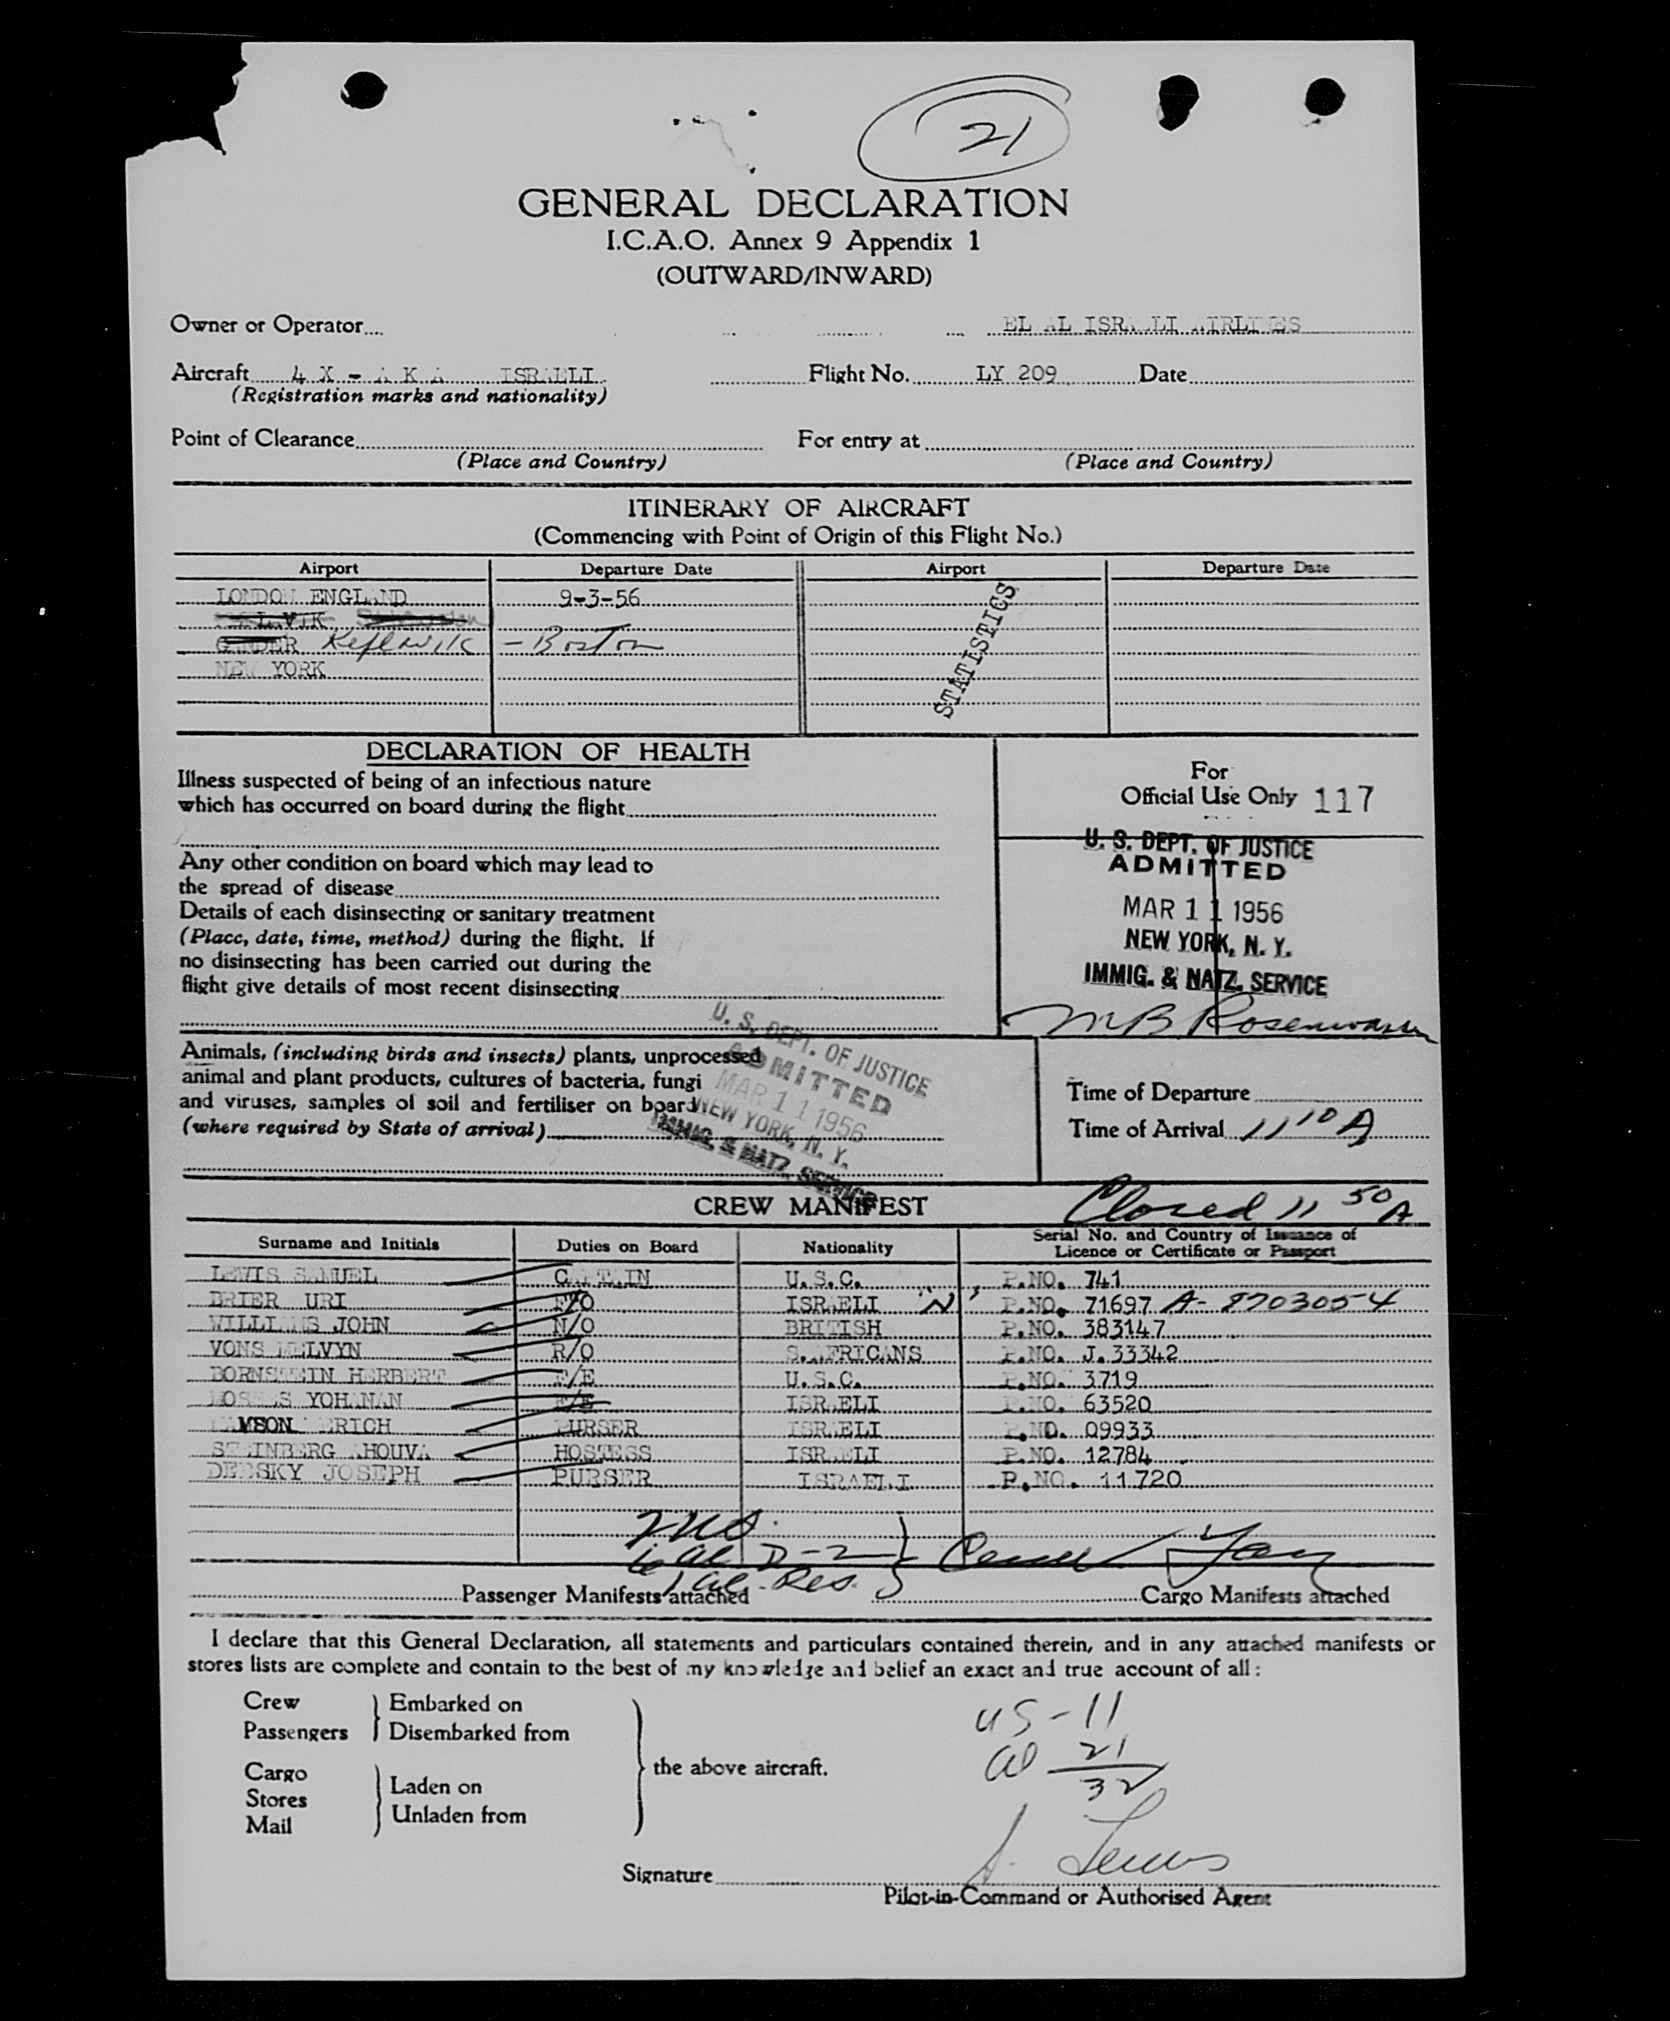 21
GENERAL DECLARATION
I.C.A.O. Annex 9 Appendix 1
(OUTWARD/INWARD)
Owner or Operator EL AL ISRAELI AIRLINES
Aircraft 4 X - A K A ISRAELI Flight No. LY 209 Date
(Registration marks and nationality)
Point of Clearance For entry at
(Place and Country) (Place and Country)
ITINERARY OF AIRCRAFT
(Commencing with Point of Origin of this Flight No.)
Airport Departure Date Airport Departure Date
LONDON ENGLAND 9-3-56
GANDER Keflavik - Boston
NEW YORK
STATISTICS
DECLARATION OF HEALTH
Illness suspected of being of an infectious nature
which has occurred on board during the flight
For
Official Use Only 117
Any other condition on board which may lead to
the spread of disease
Details of each disinsecting or sanitary treatment
(Place, date, time, method) during the flight. If
no disinsecting has been carried out during the
flight give details of most recent disinsecting
U. S. DEPT. OF JUSTICE
ADMITTED
MAR 11 1956
NEW YORK, N. Y.
IMMIG. & NATZ. SERVICE
MB
Animals, (including birds and insects) plants, unprocessed
animal and plant products, cultures of bacteria, fungi
and viruses, samples of soil and fertiliser on board
(where required by State of arrival)
U. S. DEPT. OF JUSTICE
ADMITTED
MAR 11 1956
NEW YORK, N. Y.
IMMIG. & NATZ. SERVICE
Time of Departure
Time of Arrival 11 10 A
Closed 11 50 A
CREW MANIFEST
Surname and Initials Duties on Board Nationality Serial No. and Country of Issuance of
Licence or Certificate or Passport
LEWIS SAMUEL CAPTAIN U.S.C. P.NO. 741
BRIER URI F/O ISRAELI "N" P.NO. 71697 A-8703054
WILLIAMS JOHN N/O BRITISH P.NO. 383147
VONS MELVYN R/O S.AFRICANS P.NO. J.33342
BORNSTEIN HERBERT F/E U.S.C. P.NO. 3719
YOHANAN F/E ISRAELI P.NO. 63520
ERICH PURSER ISRAELI P.NO. 09933
STEINBERG AHOUVA HOSTESS ISRAELI P.NO. 12784
JOSEPH PURSER ISRAELI P.NO. 11720
6 al D-2
1 al. Res.
Passenger Manifests attached Cargo Manifests attached
I declare that this General Declaration, all statements and particulars contained therein, and in any attached manifests or
stores lists are complete and contain to the best of my knowledge and belief an exact and true account of all:
Crew Embarked on
Passengers Disembarked from
the above aircraft.
Cargo
Stores Laden on
Mail Unladen from
US-11
al 21
32
S. Lewis
Signature
Pilot-in-Command or Authorised Agent